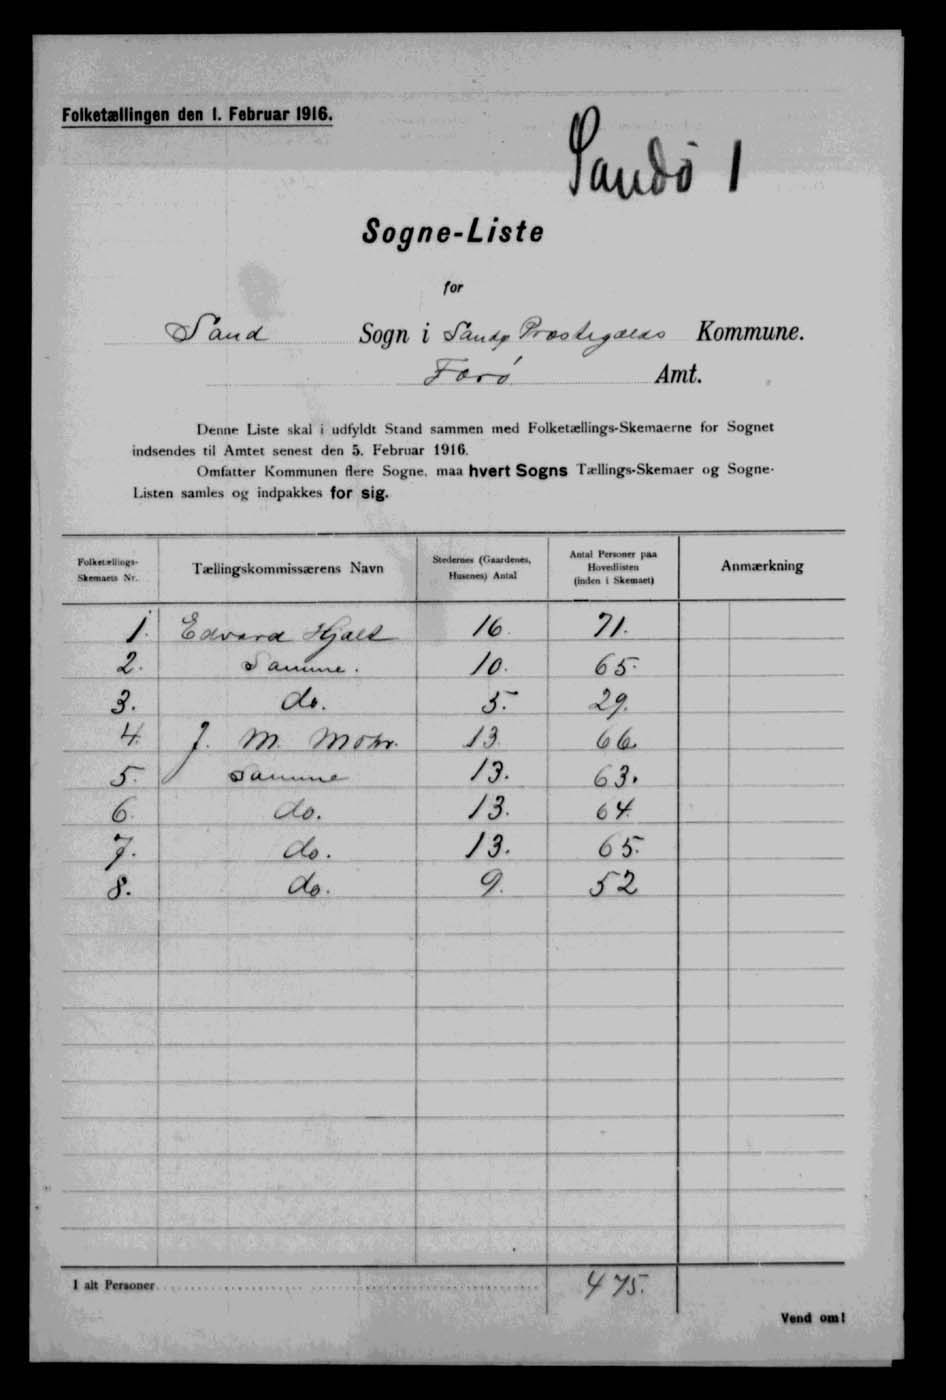 Folketællingen den 1. Februar 1916.
Sandö 1
Sogne-Liste
for
Sand Sogn i Sandø Præstegælds Kommune.
Færö Amt.
Denne Liste skal i udfyldt Stand sammen med Folketællings-Skemaerne for Sognet
indsendes til Amtet senest den 5. Februar 1916.
Omfatter Kommunen flere Sogne, maa hvert Sogns Tællings-Skemaer og Sogne-
Listen samles og indpakkes for sig.
Folketællings-Skemaets Nr. Tællingskommissærens Navn Stedernes (Gaardenes, Husenes) Antal Antal Personer paa Hovedlisten (inden i Skemaet) Anmærkning
1. Edvard Hjalt 16. 71.
2. Samme. 10. 65.
3. do. 5. 29.
4. J. M. Mohr. 13. 66.
5. Samme 13. 63.
6. do. 13. 64.
7. do. 13. 65.
8. do. 9. 52
I alt Personer 475.
Vend om!